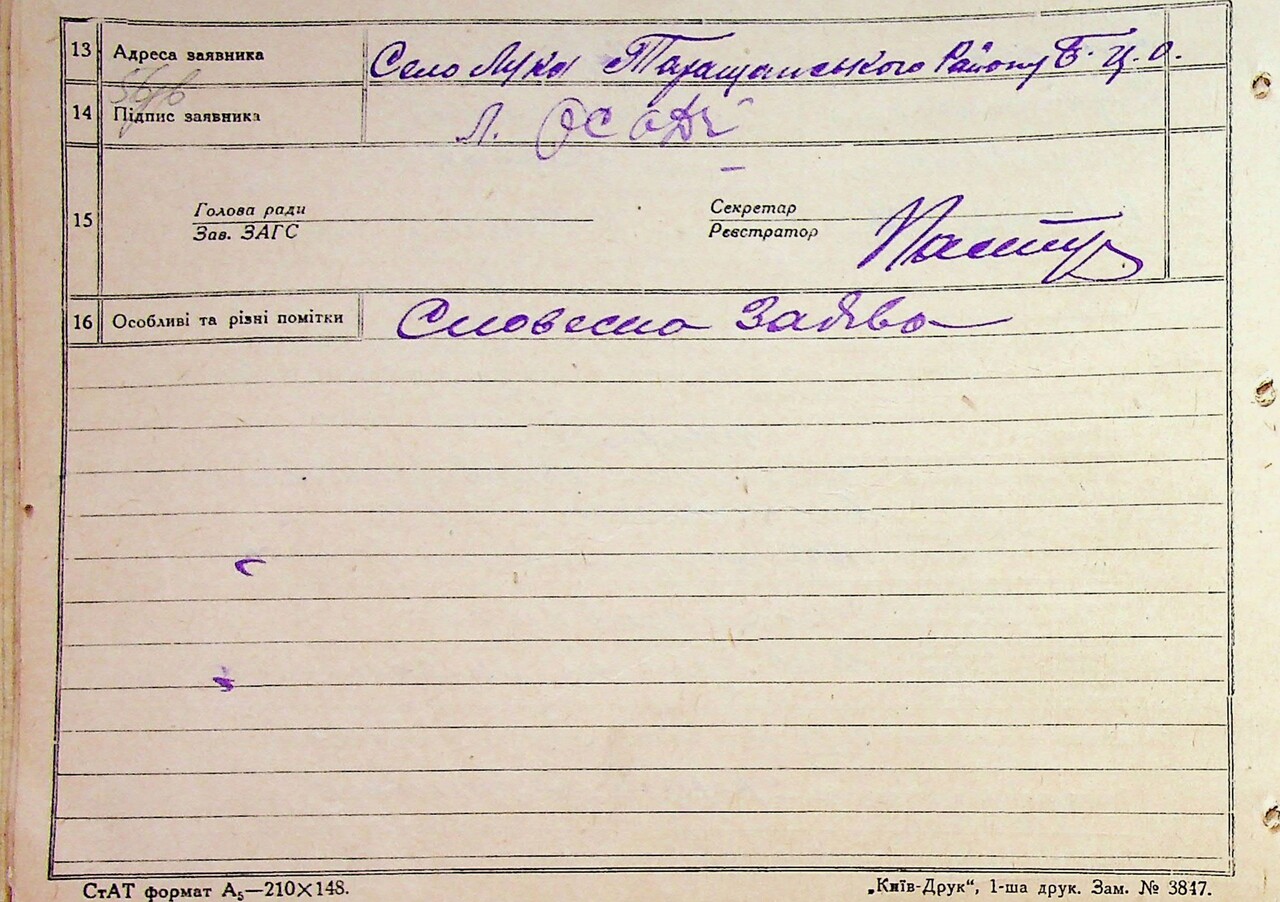 13 Адреса заявника Село Лука Таращанського Району Б. Ц. О.
14 Підпис заявника Л.
15 Голова ради Секретар
Зав. ЗАГС Реєстратор
16 Особливі та різні помітки Словесна Заява
СтАТ формат А₅—210×148. „Київ-Друк“, 1-ша друк. Зам. № 3847.